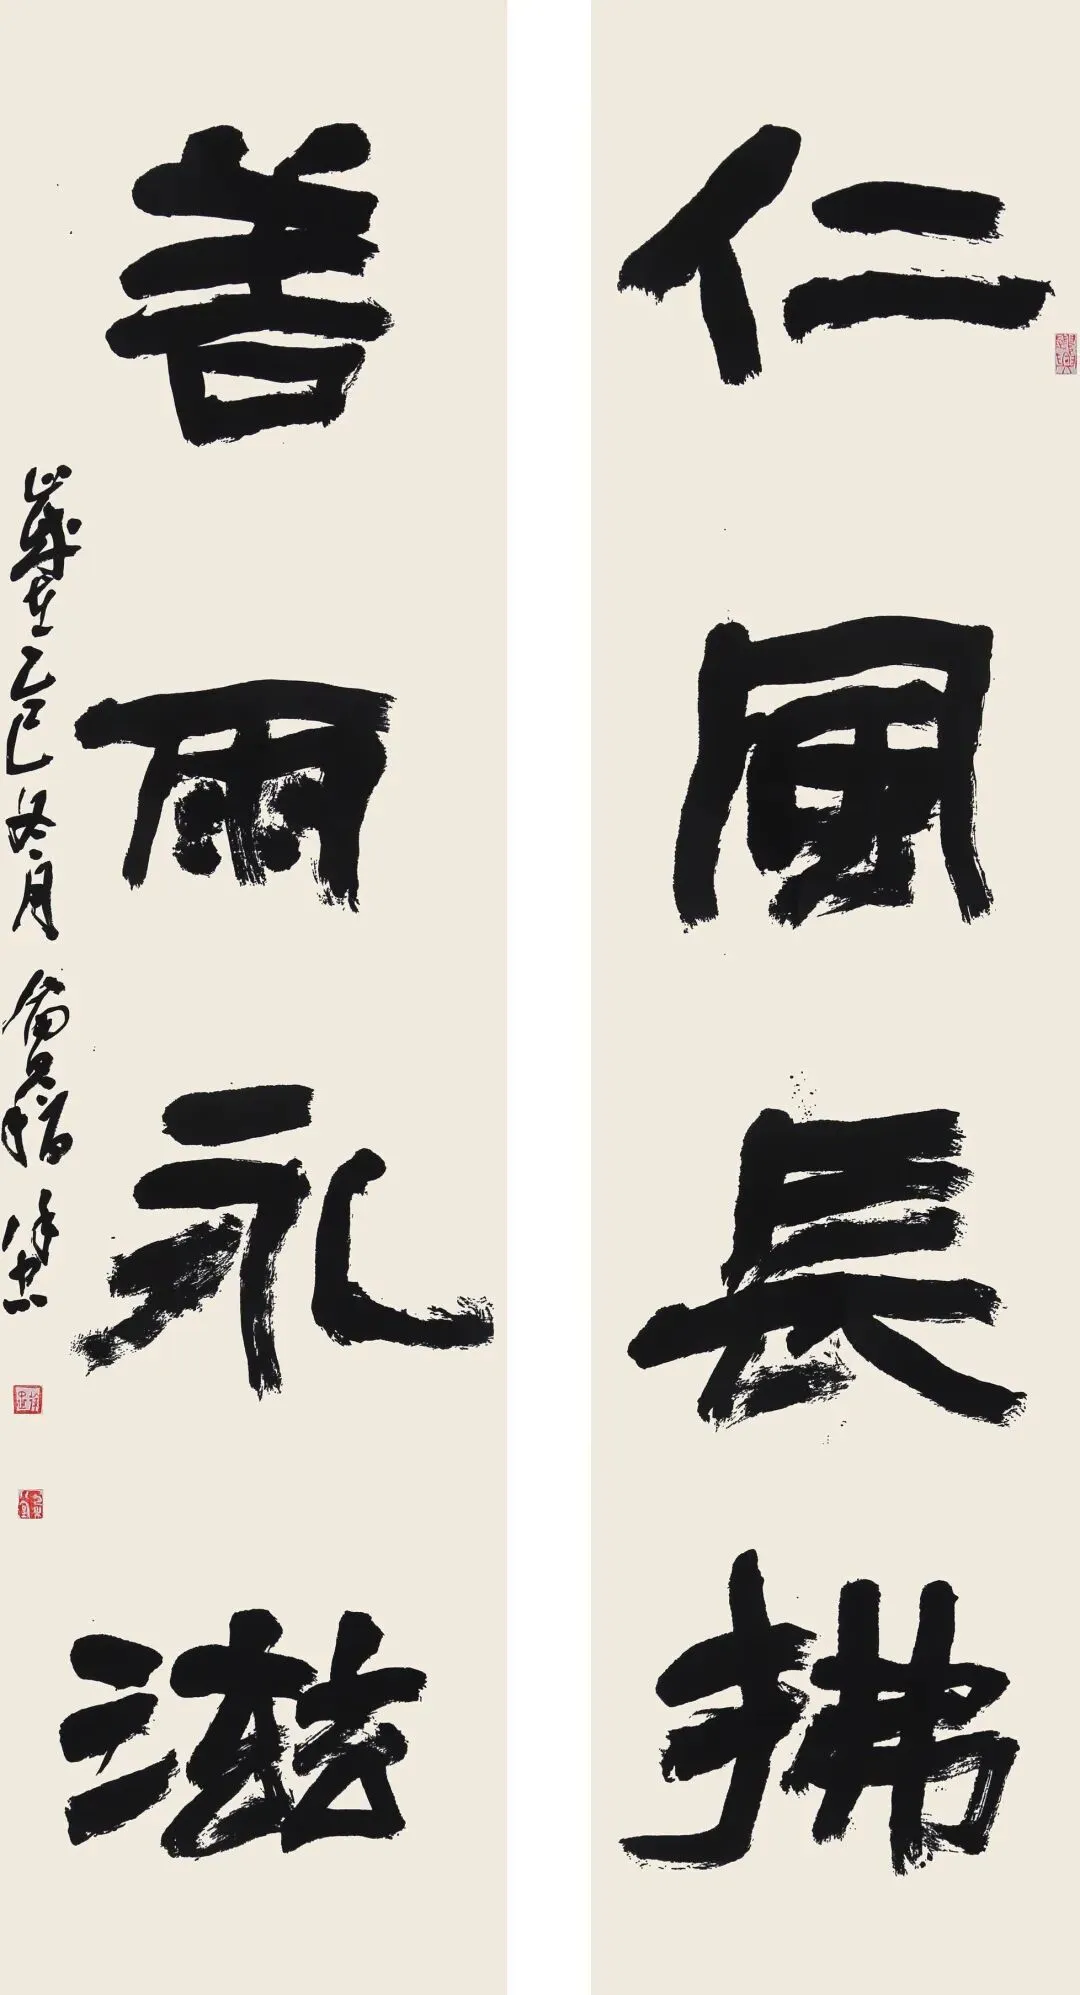 仁風長拂
善雨永滋
歲在乙巳冬月